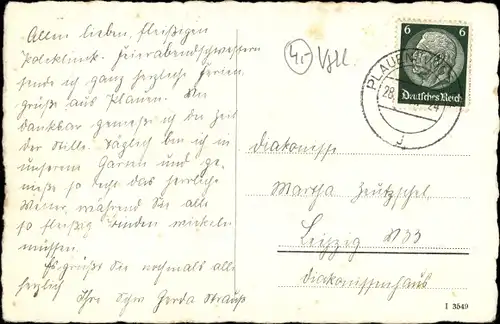 Allen lieben, fleißigen
Poliklinik. Feierabendschwestern
sende ich ganz herzliche Ferien
grüße aus Plauen. Wie
dankbar genieße ich die Zeit
der Stille. Täglich bin ich in
unserem Garten und ge-
nieße so recht das herrliche
Wetter, während Sie alle
so fleißig Binden wickeln
müssen.
Es grüßt Sie nochmals alle
herzlich Ihre Schw. Gerda Strauß
4.-
6 6
Deutsches Reich
PLAUEN
28.
j
Diakonisse
Martha Zeutzschel
Leipzig W33
Diakonissenhaus
I 3549